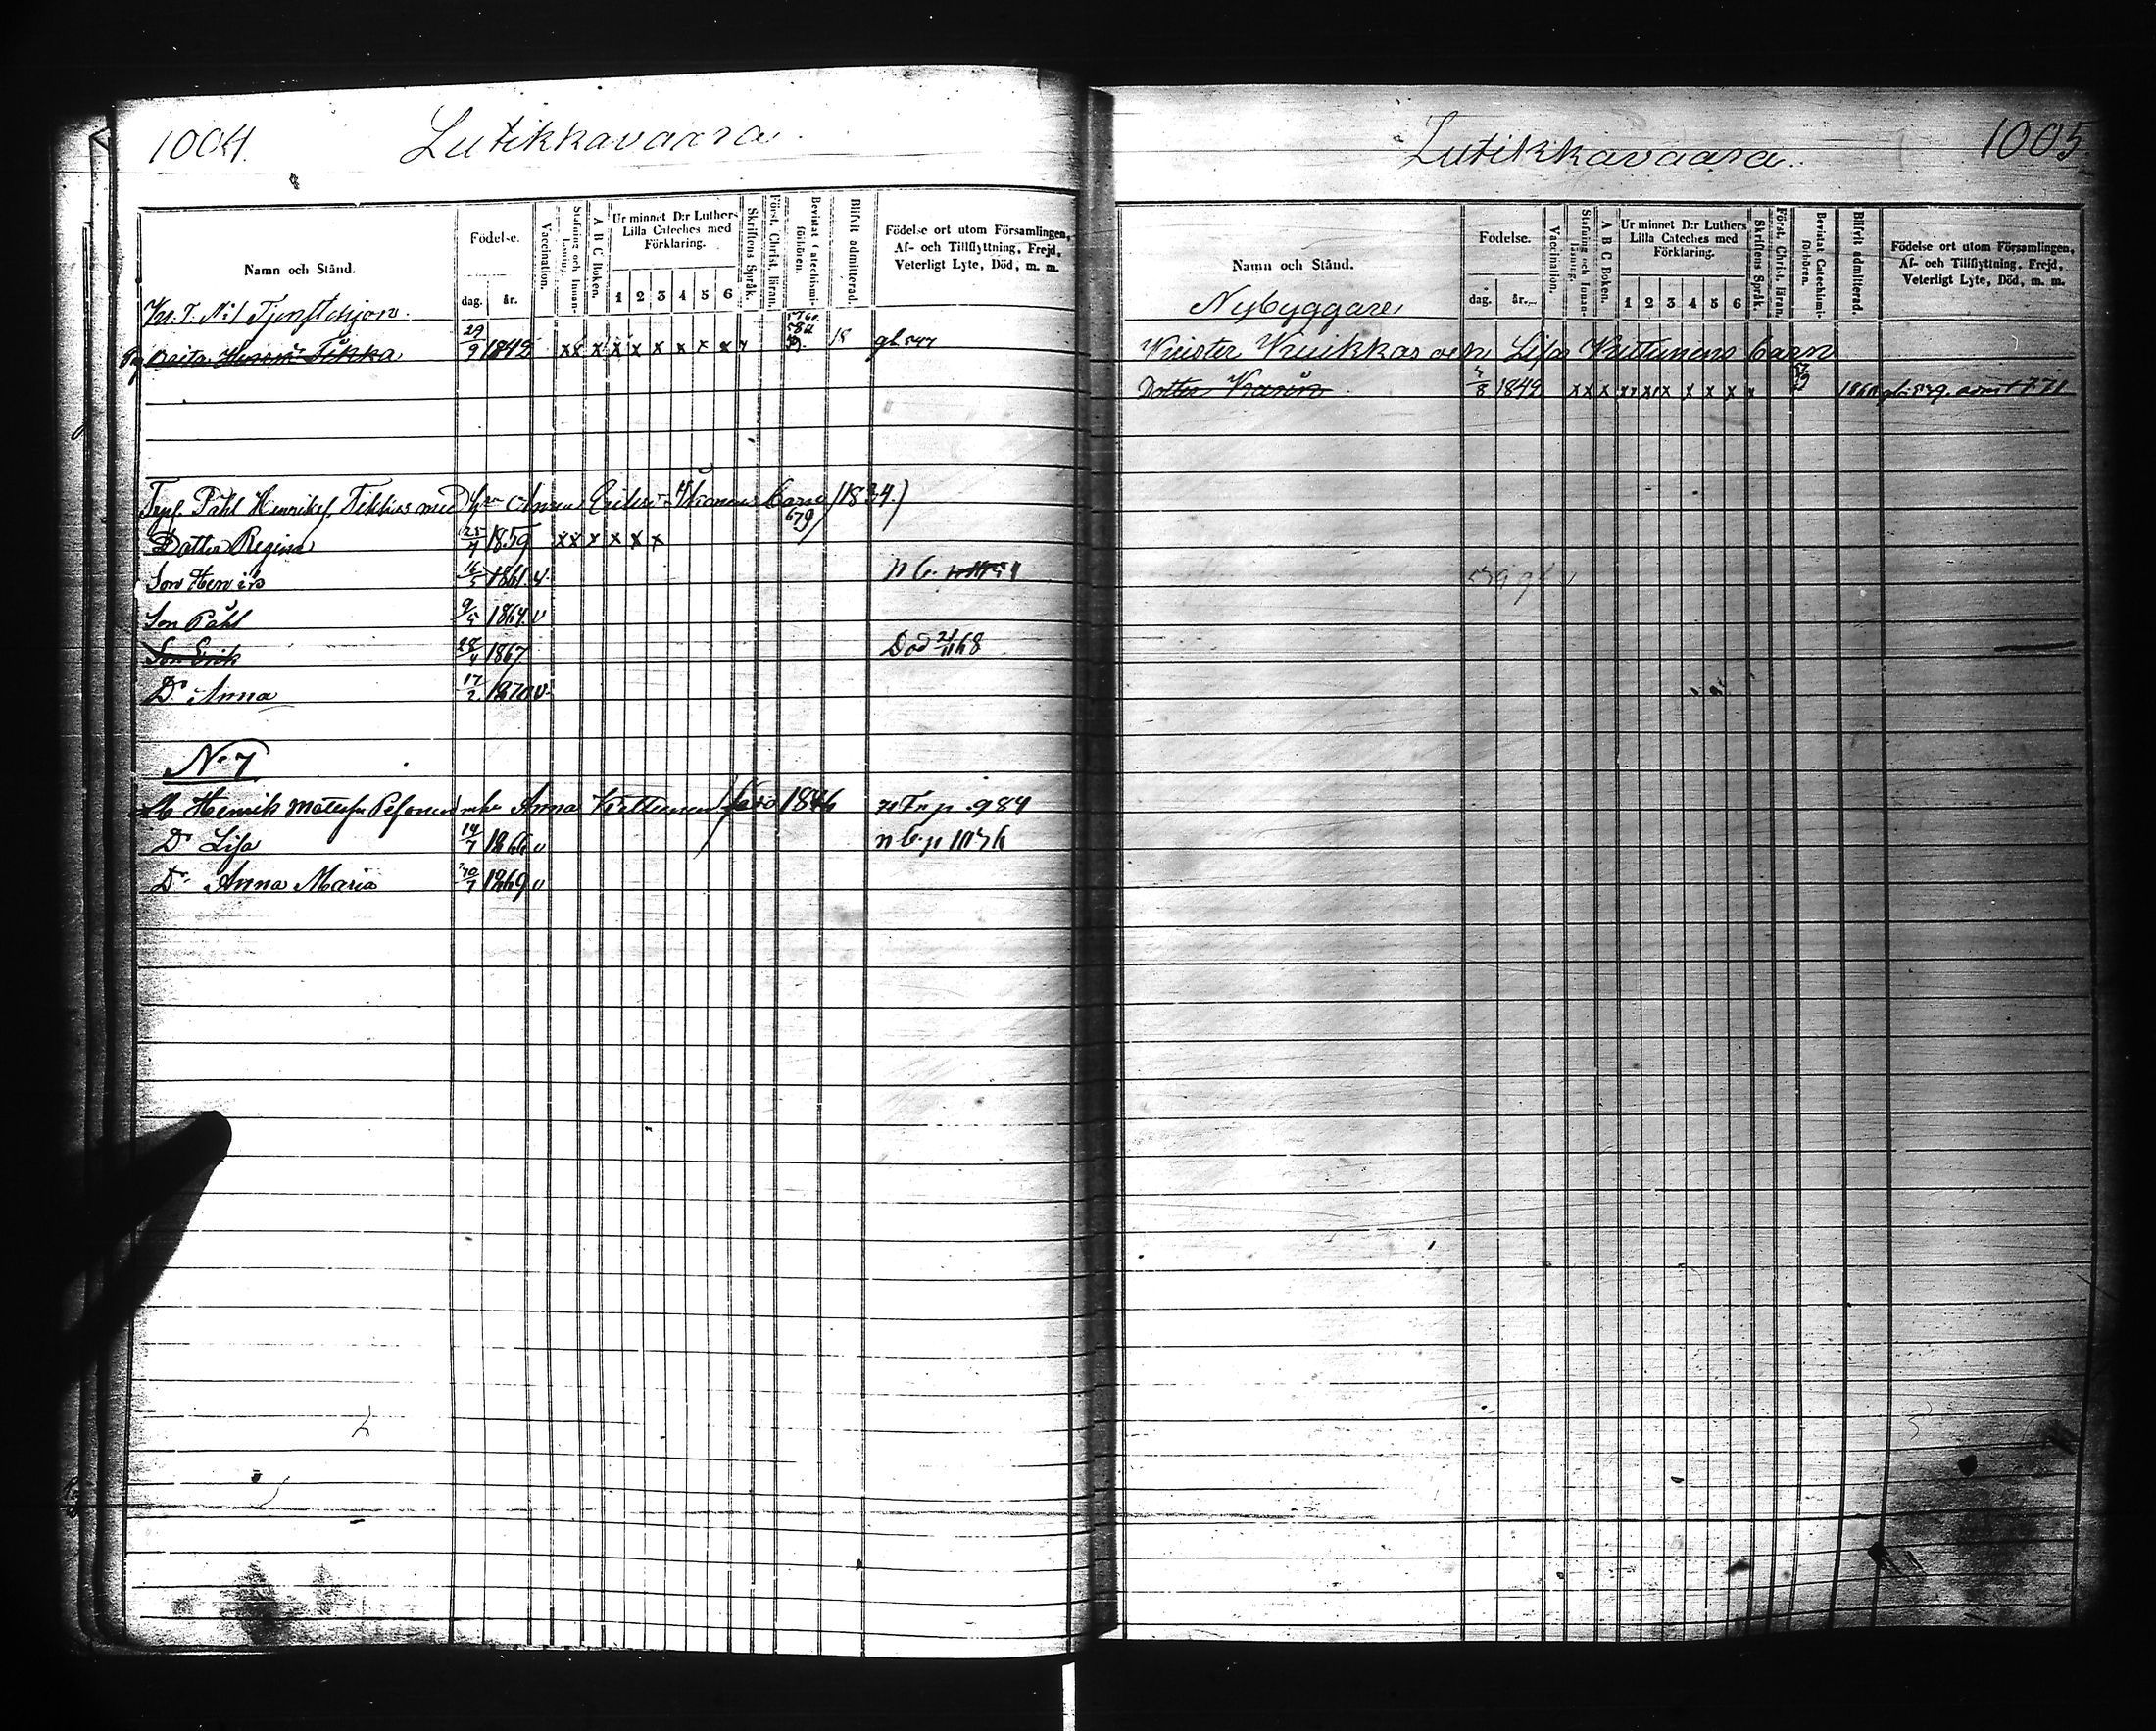 1004. Lutikkavaara.
Namn och Stånd.
Födelse.
dag. år.
Vaccination.
Stafning och Innanläsning.
A B C Boken.
Ur minnet D:r Luthers Lilla Cateches med Förklaring.
1 2 3 4 5 6
Skriftens Språk.
Först. Christ. läran.
Bevistat Catechismiförhören.
Blifvit admitterad.
Födelse ort utom Församlingen, Af- och Tillflyttning, Frejd, Veterligt Lyte, Död, m. m.
Kr. T. N:1 Tjenstehjon.
Brita Tikka 29/9 1842 xx x x x x x x x 18 gb 547
Pähl Henrikss. Tikkas med h:u Anna barn (1834.)
679
Dotter Regina 25/4 1859 xx x x x x
Son Henrik 16/5 1861 v. n b.
Son Påhl 9/5 1864 v
Son Erik 28/4 1867 Död 68
D. Anna 17/2 1870 v.
N. 7
Henrik Matsson Pesonen mhu Anna Kettunen 1846 p. 984
D:r Lisa 14/7 1866 v n b. p
D:r Anna Maria 1869 v
Lutikkavaara. 1005
Namn och Stånd.
Födelse.
dag. år.
Vaccination.
Stafning och Innanläsning.
A B C Boken.
Ur minnet D:r Luthers Lilla Cateches med Förklaring.
1 2 3 4 5 6
Skriftens Språk.
Först. Christ. läran.
Bevistat Catechismiförhören.
Blifvit admitterad.
Födelse ort utom Församlingen, Af- och Tillflyttning, Frejd, Veterligt Lyte, Död, m. m.
Nybyggare
Krister Kuikkas och Lisa Kettunens barn
Dotter Karin 1842 xx x x x x x x x x 771